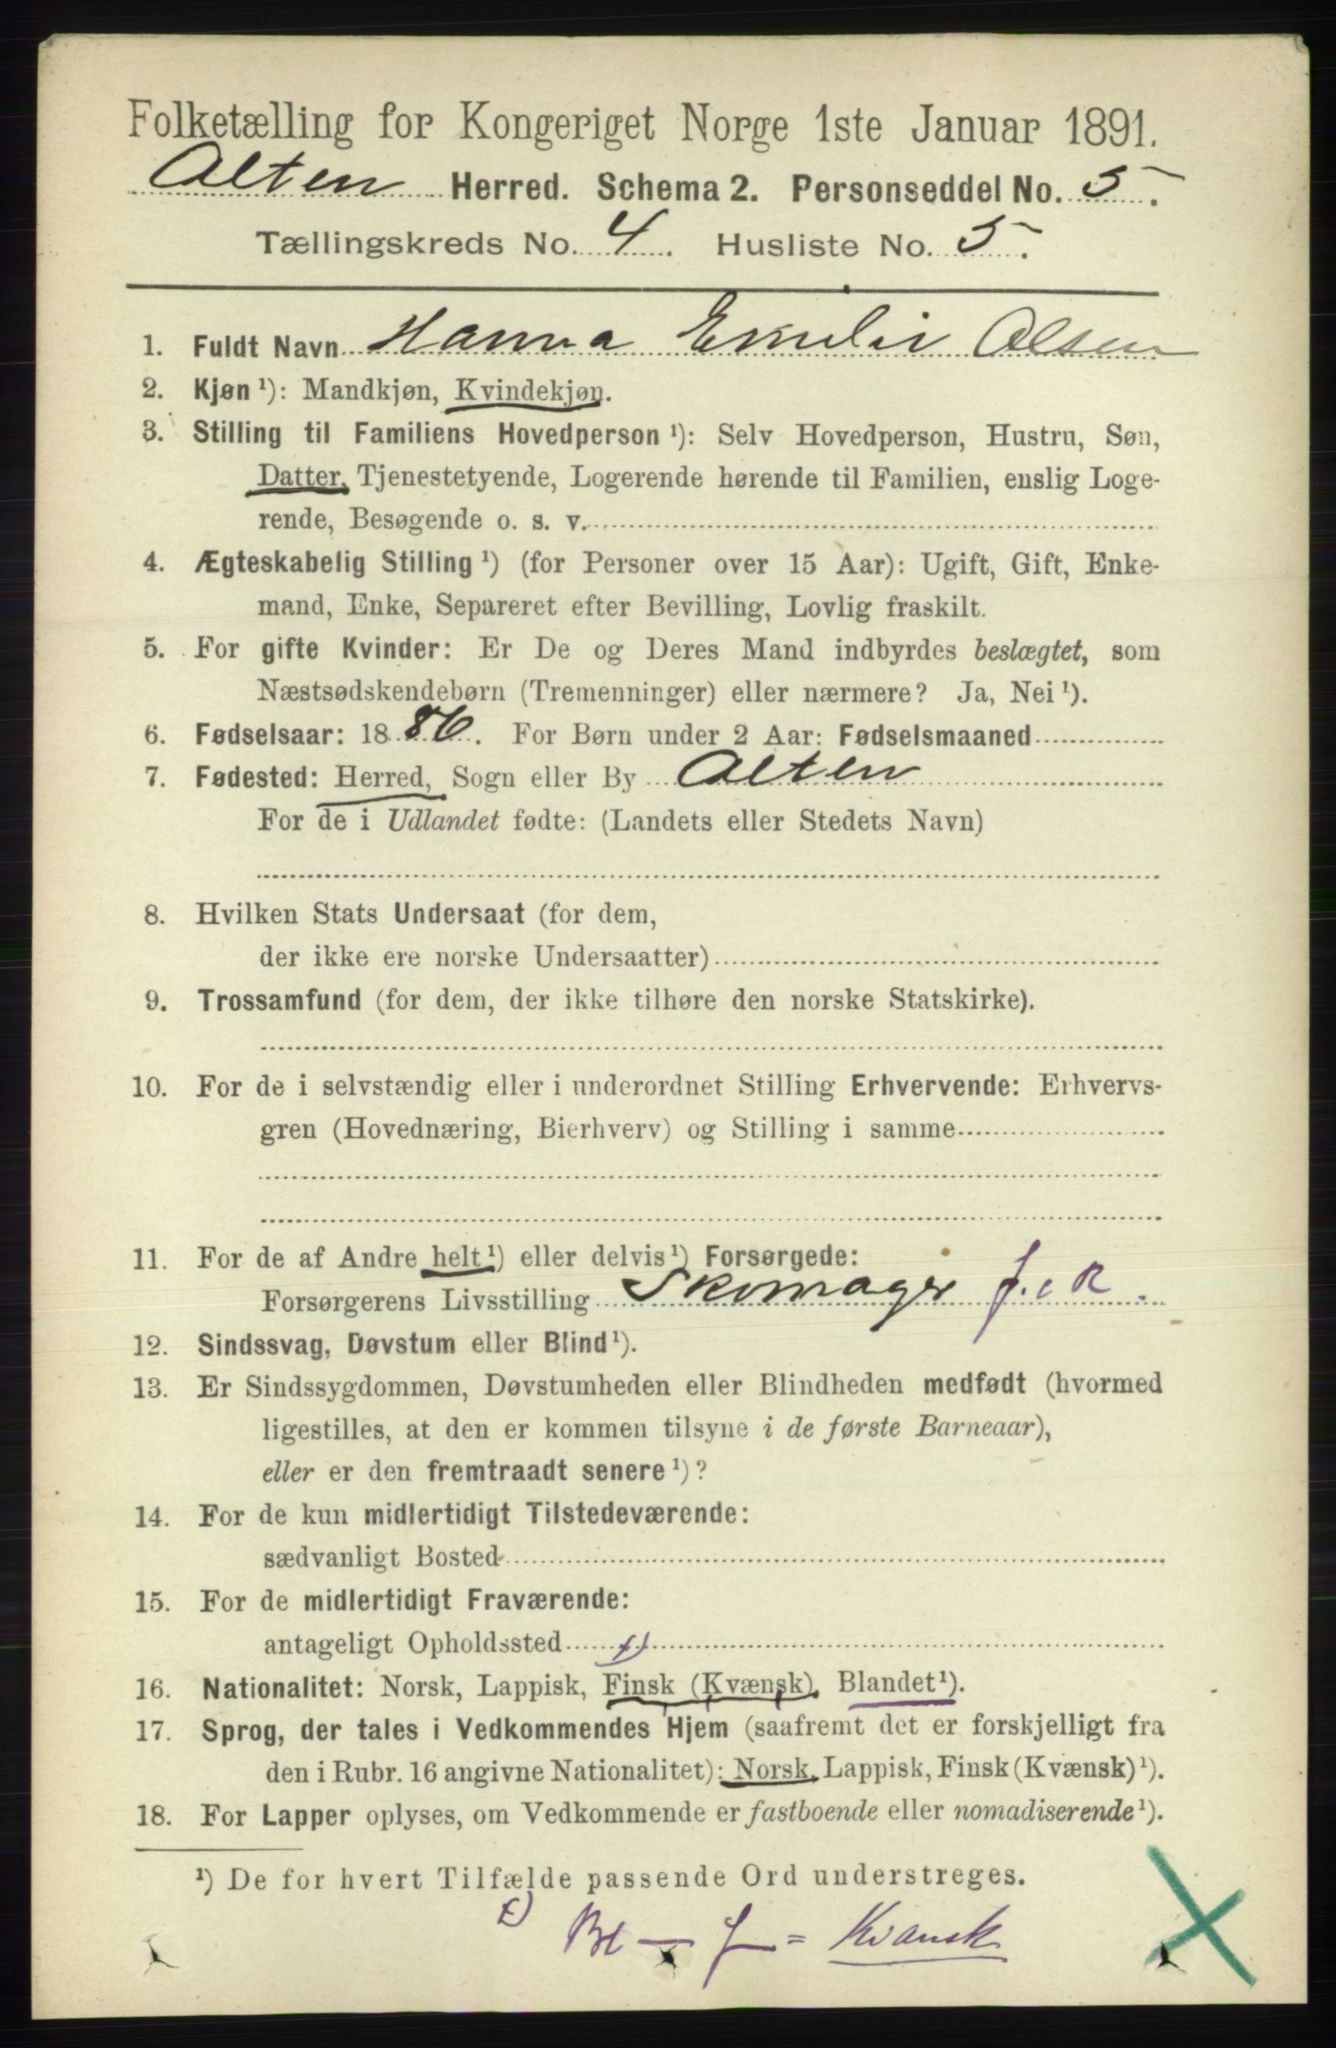 Folketælling for Kongeriget Norge 1ste Januar 1891.
Alten Herred. Schema 2. Personseddel No. 5.
Tællingskreds No. 4. Husliste No. 5.
1. Fuldt Navn Hanna Emilie Olsen
2. Kjøn ¹): Mandkjøn, Kvindekjøn.
3. Stilling til Familiens Hovedperson ¹): Selv Hovedperson, Hustru, Søn,
Datter, Tjenestetyende, Logerende hørende til Familien, enslig Loge-
rende, Besøgende o. s. v.
4. Ægteskabelig Stilling ¹) (for Personer over 15 Aar): Ugift, Gift, Enke-
mand, Enke, Separeret efter Bevilling, Lovlig fraskilt.
5. For gifte Kvinder: Er De og Deres Mand indbyrdes beslægtet, som
Næstsødskendebørn (Tremenninger) eller nærmere? Ja, Nei ¹).
6. Fødselsaar: 1886. For Børn under 2 Aar: Fødselsmaaned
7. Fødested: Herred, Sogn eller By Alten
For de i Udlandet fødte: (Landets eller Stedets Navn)
8. Hvilken Stats Undersaat (for dem,
der ikke ere norske Undersaatter)
9. Trossamfund (for dem, der ikke tilhøre den norske Statskirke).
10. For de i selvstændig eller i underordnet Stilling Erhvervende: Erhvervs-
gren (Hovednæring, Bierhverv) og Stilling i samme
11. For de af Andre helt ¹) eller delvis ¹) Forsørgede:
Forsørgerens Livsstilling Skomager
12. Sindssvag, Døvstum eller Blind ¹).
13. Er Sindssygdommen, Døvstumheden eller Blindheden medfødt (hvormed
ligestilles, at den er kommen tilsyne i de første Barneaar),
eller er den fremtraadt senere ¹)?
14. For de kun midlertidigt Tilstedeværende:
sædvanligt Bosted
15. For de midlertidigt Fraværende:
antageligt Opholdssted
16. Nationalitet: Norsk, Lappisk, Finsk (Kvænsk), Blandet ¹).
17. Sprog, der tales i Vedkommendes Hjem (saafremt det er forskjelligt fra
den i Rubr. 16 angivne Nationalitet): Norsk, Lappisk, Finsk (Kvænsk) ¹).
18. For Lapper oplyses, om Vedkommende er fastboende eller nomadiserende ¹).
¹) De for hvert Tilfælde passende Ord understreges.
Bl — f = Kvænsk